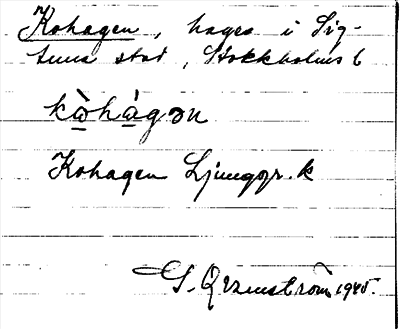 Kohagen, hage i Sig-
tuna stad, Stockholms l
kòhàgən
Kohagen Ljunggr. k
1945.